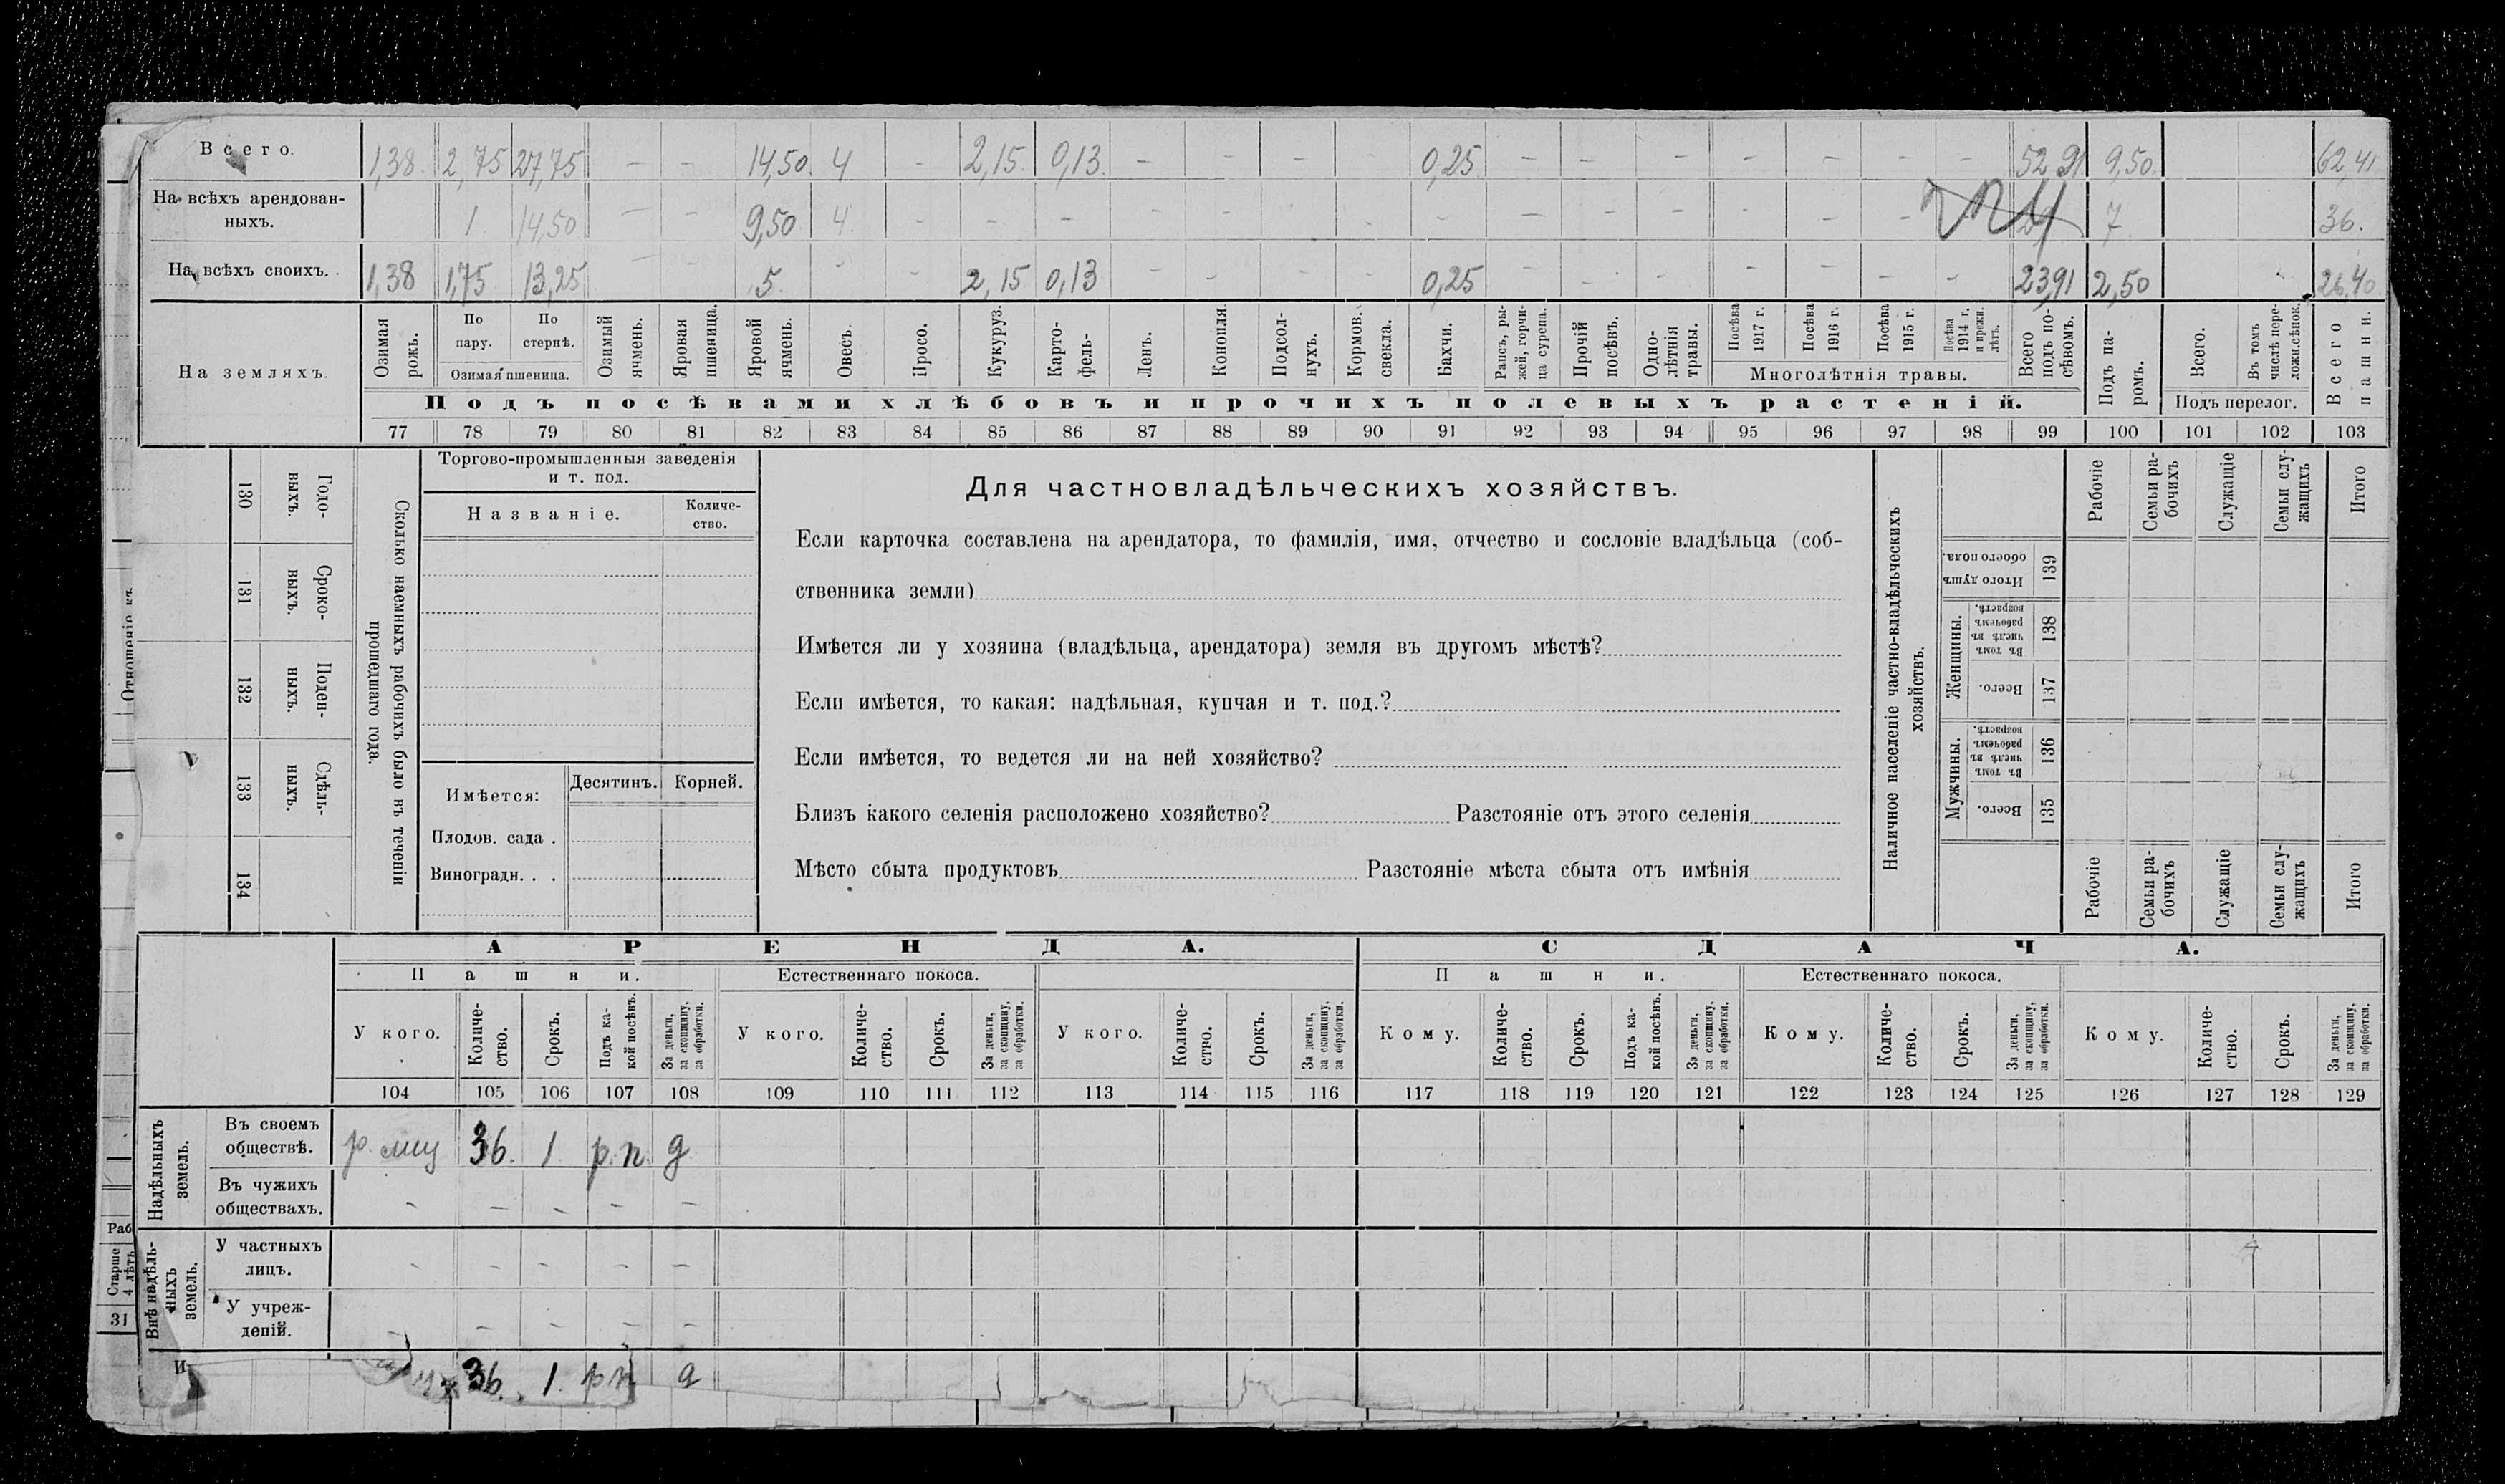 Всего. 1,38 2,75 27,75 – – 14,50 4 – 2,15 0,13 – – – – 0,25 – – – – – – – 52,91 9,50 62,41
На всѣхъ арендован-
ныхъ. 1 14,50 – – 9,50 4 – – – – – – – – – – – – – – 7 36.
На всѣхъ своихъ. 1,38 1,75 13,25 – – 5 – – 2,15 0,13 – – – – 0,25 – – – – – – – 23,91 2,50 26,40
На земляхъ.
Озимая рожь.
По пару.
По стернѣ.
Озимая пшеница.
Озимый ячмень.
Яровая пшеница.
Яровой ячмень.
Овесъ.
Просо.
Кукуруз.
Карто-
фель-
Ленъ.
Конопля.
Подсол-
нухъ.
Кормов.
свекла.
Бахчи.
Рапсъ, ры-
жей, горчи-
ца сурепа.
Прочій
посѣвъ.
Одно-
лѣтнія
травы.
Посѣва
1917 г.
Посѣва
1916 г.
Посѣва
1915 г.
Посѣва
1914 г.
и прежн.
лѣтъ.
Многолѣтнія травы.
Всего
подъ по-
сѣвомъ.
Подъ па-
ромъ.
Всего.
Въ томъ
числѣ пере-
ложн.сѣнок.
Подъ перелог.
Всего
пашни.
Подъ посѣвами хлѣбовъ и прочихъ полевыхъ растеній.
77 78 79 80 81 82 83 84 85 86 87 88 89 90 91 92 93 94 95 96 97 98 99 100 101 102 103
Отношеніе къ
130 Годо-
выхъ.
131 Сроко-
выхъ.
132 Поден-
ныхъ.
133 Сдѣль-
ныхъ.
134
Сколько наемныхъ рабочихъ было въ теченіи
прошедшаго года.
Торгово-промышленныя заведенія
и т. под.
Названіе.
Количе-
ство.
Имѣется:
Десятинъ. Корней.
Плодов. сада .
Виноградн. . .
Для частновладѣльческихъ хозяйствъ.
Если карточка составлена на арендатора, то фамилія, имя, отчество и сословіе владѣльца (соб-
ственника земли)
Имѣется ли у хозяина (владѣльца, арендатора) земля въ другомъ мѣстѣ?
Если имѣется, то какая: надѣльная, купчая и т. под.?
Если имѣется, то ведется ли на ней хозяйство?
Близъ какого селенія расположено хозяйство? Разстояніе отъ этого селенія
Мѣсто сбыта продуктовъ Разстояніе мѣста сбыта отъ имѣнія
Наличное населеніе частно-владѣльческихъ
хозяйствъ.
Рабочіе
Семьи ра-
бочихъ
Служащіе
Семьи слу-
жащихъ
Итого
Итого душъ
обоего пола. 139
Женщины.
Въ томъ
числѣ въ
рабочемъ
возрастѣ. 138
Всего. 137
Мужчины.
Въ томъ
числѣ въ
рабочемъ
возрастѣ. 136
Всего. 135
Рабочіе
Семьи ра-
бочихъ
Служащіе
Семьи слу-
жащихъ
Итого
АРЕНДА. СДАЧА.
Пашни. Естественнаго покоса. Пашни. Естественнаго покоса.
У кого.
Количе-
ство.
Срокъ.
Подъ ка-
кой посѣвъ.
За деньги,
за скопщину,
за обработки.
У кого.
Количе-
ство.
Срокъ.
За деньги,
за скопщину,
за обработки.
У кого.
Количе-
ство.
Срокъ.
За деньги,
за скопщину,
за обработки.
Кому.
Количе-
ство.
Срокъ.
Подъ ка-
кой посѣвъ.
За деньги,
за скопщину,
за обработки.
Кому.
Количе-
ство.
Срокъ.
За деньги,
за скопщину,
за обработки.
Кому.
Количе-
ство.
Срокъ.
За деньги,
за скопщину,
за обработки.
104 105 106 107 108 109 110 111 112 113 114 115 116 117 118 119 120 121 122 123 124 125 126 127 128 129
Надѣльныхъ
земель.
Въ своемъ
обществѣ. 36. 1 р.п. д
Въ чужихъ
обществахъ. – – – – –
Внѣ надѣль-
ныхъ
земель.
У частныхъ
лицъ. – – – – –
У учреж-
деній. – – – – –
И 36. 1. рп д
Раб
Старше
4 лѣтъ
31